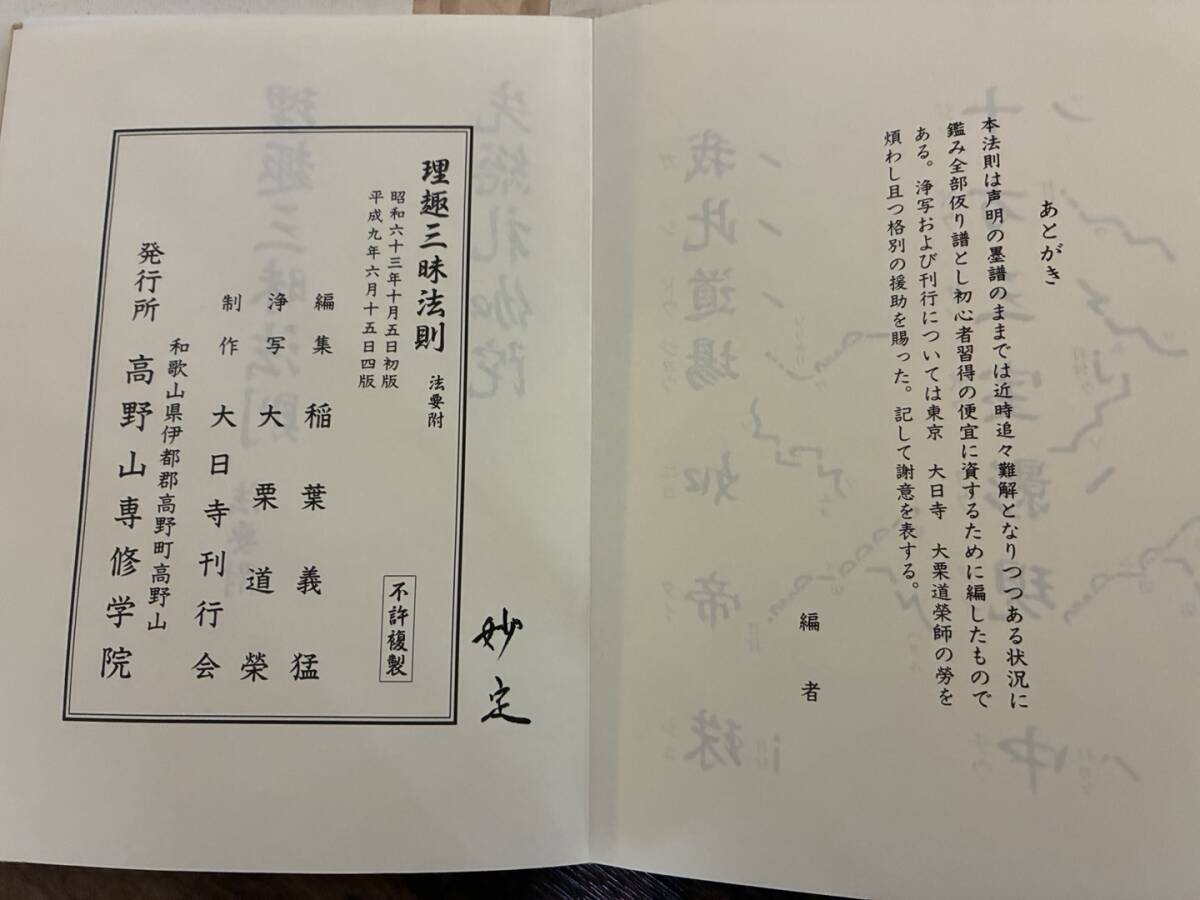 あとがき
本法則は声明の墨譜のままでは近時追々難解となりつつある状況に
鑑み全部仮り譜とし初心者習得の便宜に資するために編したもので
ある。浄写および刊行については東京　大日寺　大栗道榮師の労を
煩わし且つ格別の援助を賜った。記して謝意を表する。
編者
妙定
理趣三昧法則 法要附
昭和六十三年十月五日初版
平成九年六月十五日四版
不許複製
編集 稲葉義猛
浄写 大栗道榮
制作 大日寺刊行会
和歌山県伊都郡高野町高野山
発行所 高野山専修学院